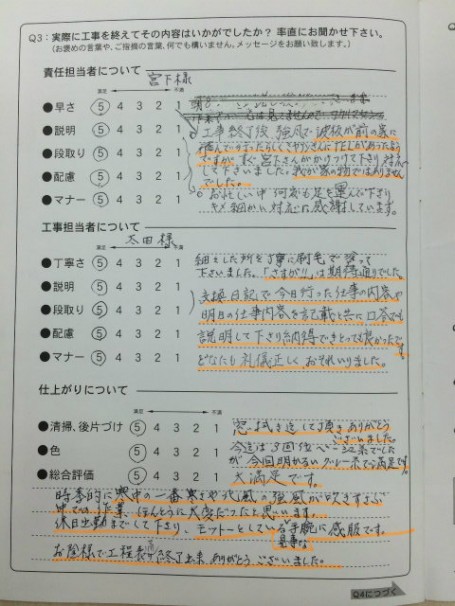 Q3：実際に工事を終えてその内容はいかがでしたか？ 率直にお聞かせ下さい。
（お褒めの言葉や、ご指摘の言葉、何でも構いません。メッセージをお願い致します。）
責任担当者について 宮下様
満足 不満
●早さ 5 4 3 2 1
●説明 5 4 3 2 1
●段取り 5 4 3 2 1
●配慮 5 4 3 2 1
●マナー 5 4 3 2 1
工事終了後、強風で波板が前の家に
すぐ、宮下さんがかけつけて下さり対応
して下さいました。我が家の物ではありません
でした。
お忙しい中 何度も足を運んで下さり
キメ細かい対応に感謝しています。
工事担当者について 太田様
満足 不満
●丁寧さ 5 4 3 2 1
●説明 5 4 3 2 1
●段取り 5 4 3 2 1
●配慮 5 4 3 2 1
●マナー 5 4 3 2 1
細々とした所を丁寧に刷毛で塗って
下さいました。「さすが!!」は期待通りでした
交換日記で今日行った仕事の内容や
明日の仕事内容を記載と共に口答でも
説明して下さり納得できとっても良かったです
どなたも礼儀正しく、おそれいりました。
仕上がりについて
満足 不満
●清掃、後片づけ 5 4 3 2 1
●色 5 4 3 2 1
●総合評価 5 4 3 2 1
窓拭き迄して頂きありがとう
ございました。
今迄は3回位ベージュ系でした
が今回明かるいグリーン系で満足です
大満足です。
時季的に寒中の一番寒さや北風の強風が吹きすさぶ
中での作業、ほんとうに大変だったと思います。
休日出勤までして下り、モットーとしている
見事な手腕に感服です。
お陰様で工程表通り終了出来、ありがとうございました。
Q4につづく